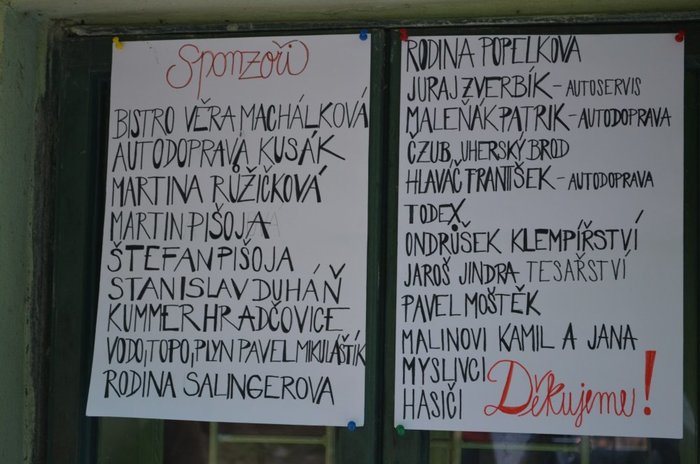 Sponzoři
BISTRO VĚRA MACHÁLKOVÁ
AUTODOPRAVA KUSÁK
MARTINA RŮŽIČKOVÁ
MARTIN PIŠOJA
ŠTEFAN PIŠOJA
STANISLAV DUHÁŇ
KUMMER HRADČOVICE
VODO, TOPO, PLYN PAVEL MIKULÁŠTÍK
RODINA SALINGEROVA
RODINA POPELKOVA
JURAJ ZVERBÍK - AUTOSERVIS
MALEŇÁK PATRIK - AUTODOPRAVA
ČZUB, UHERSKÝ BROD
HLAVÁČ FRANTIŠEK - AUTODOPRAVA
TODEX
ONDRŮŠEK KLEMPÍŘSTVÍ
JAROŠ JINDRA TESAŘSTVÍ
PAVEL MOŠTĚK
MALINOVI KAMIL A JANA
MYSLIVCI
HASIČI
Děkujeme!